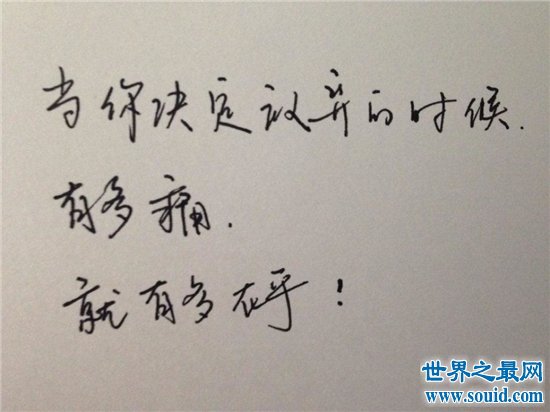 当你决定放弃的时候.
有多痛.
就有多在乎!
世界之最网
www.souid.com